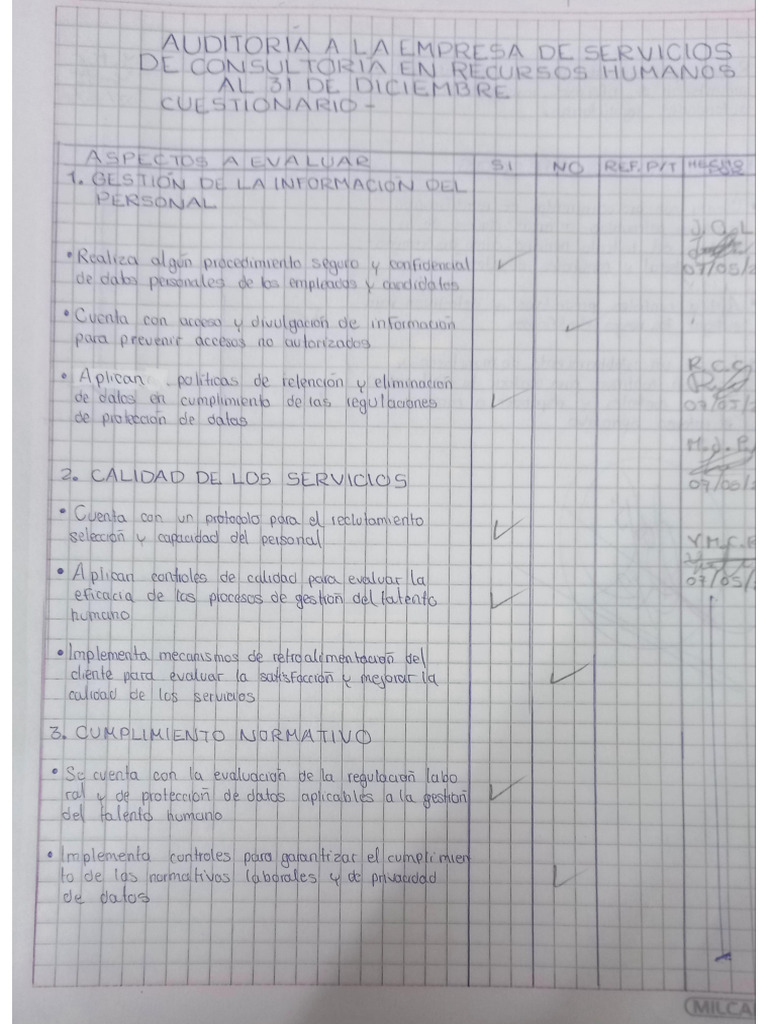 AUDITORÍA A LA EMPRESA DE SERVICIOS
DE CONSULTORIA EN RECURSOS HUMANOS
AL 31 DE DICIEMBRE
CUESTIONARIO -
ASPECTOS A EVALUAR SI NO REF. P/T
1. GESTIÓN DE LA INFORMACIÓN DEL
PERSONAL
J. O. L
• Realiza algún procedimiento seguro y confidencial
de datos personales de los empleados y candidatos
07/05/2
• Cuenta con acceso y divulgación de información
para prevenir accesos no autorizados
R. C. C
• Aplican políticas de retención y eliminación
de datos en cumplimiento de las regulaciones
07/05/2
de protección de datos
M. J. P.
2. CALIDAD DE LOS SERVICIOS
07/05/2
• Cuenta con un protocolo para el reclutamiento
selección y capacidad del personal
Y.M.C.P
• Aplican controles de calidad para evaluar la
07/05/2
eficacia de los procesos de gestión del talento
humano
• Implementa mecanismos de retroalimentación del
cliente para evaluar la satisfacción y mejorar la
calidad de los servicios
3. CUMPLIMIENTO NORMATIVO
• Se cuenta con la evaluación de la regulación labo
ral y de protección de datos aplicables a la gestión
del talento humano
• Implementa controles para garantizar el cumplimien
to de los normativos laborales y de privacidad
de datos
MILCA